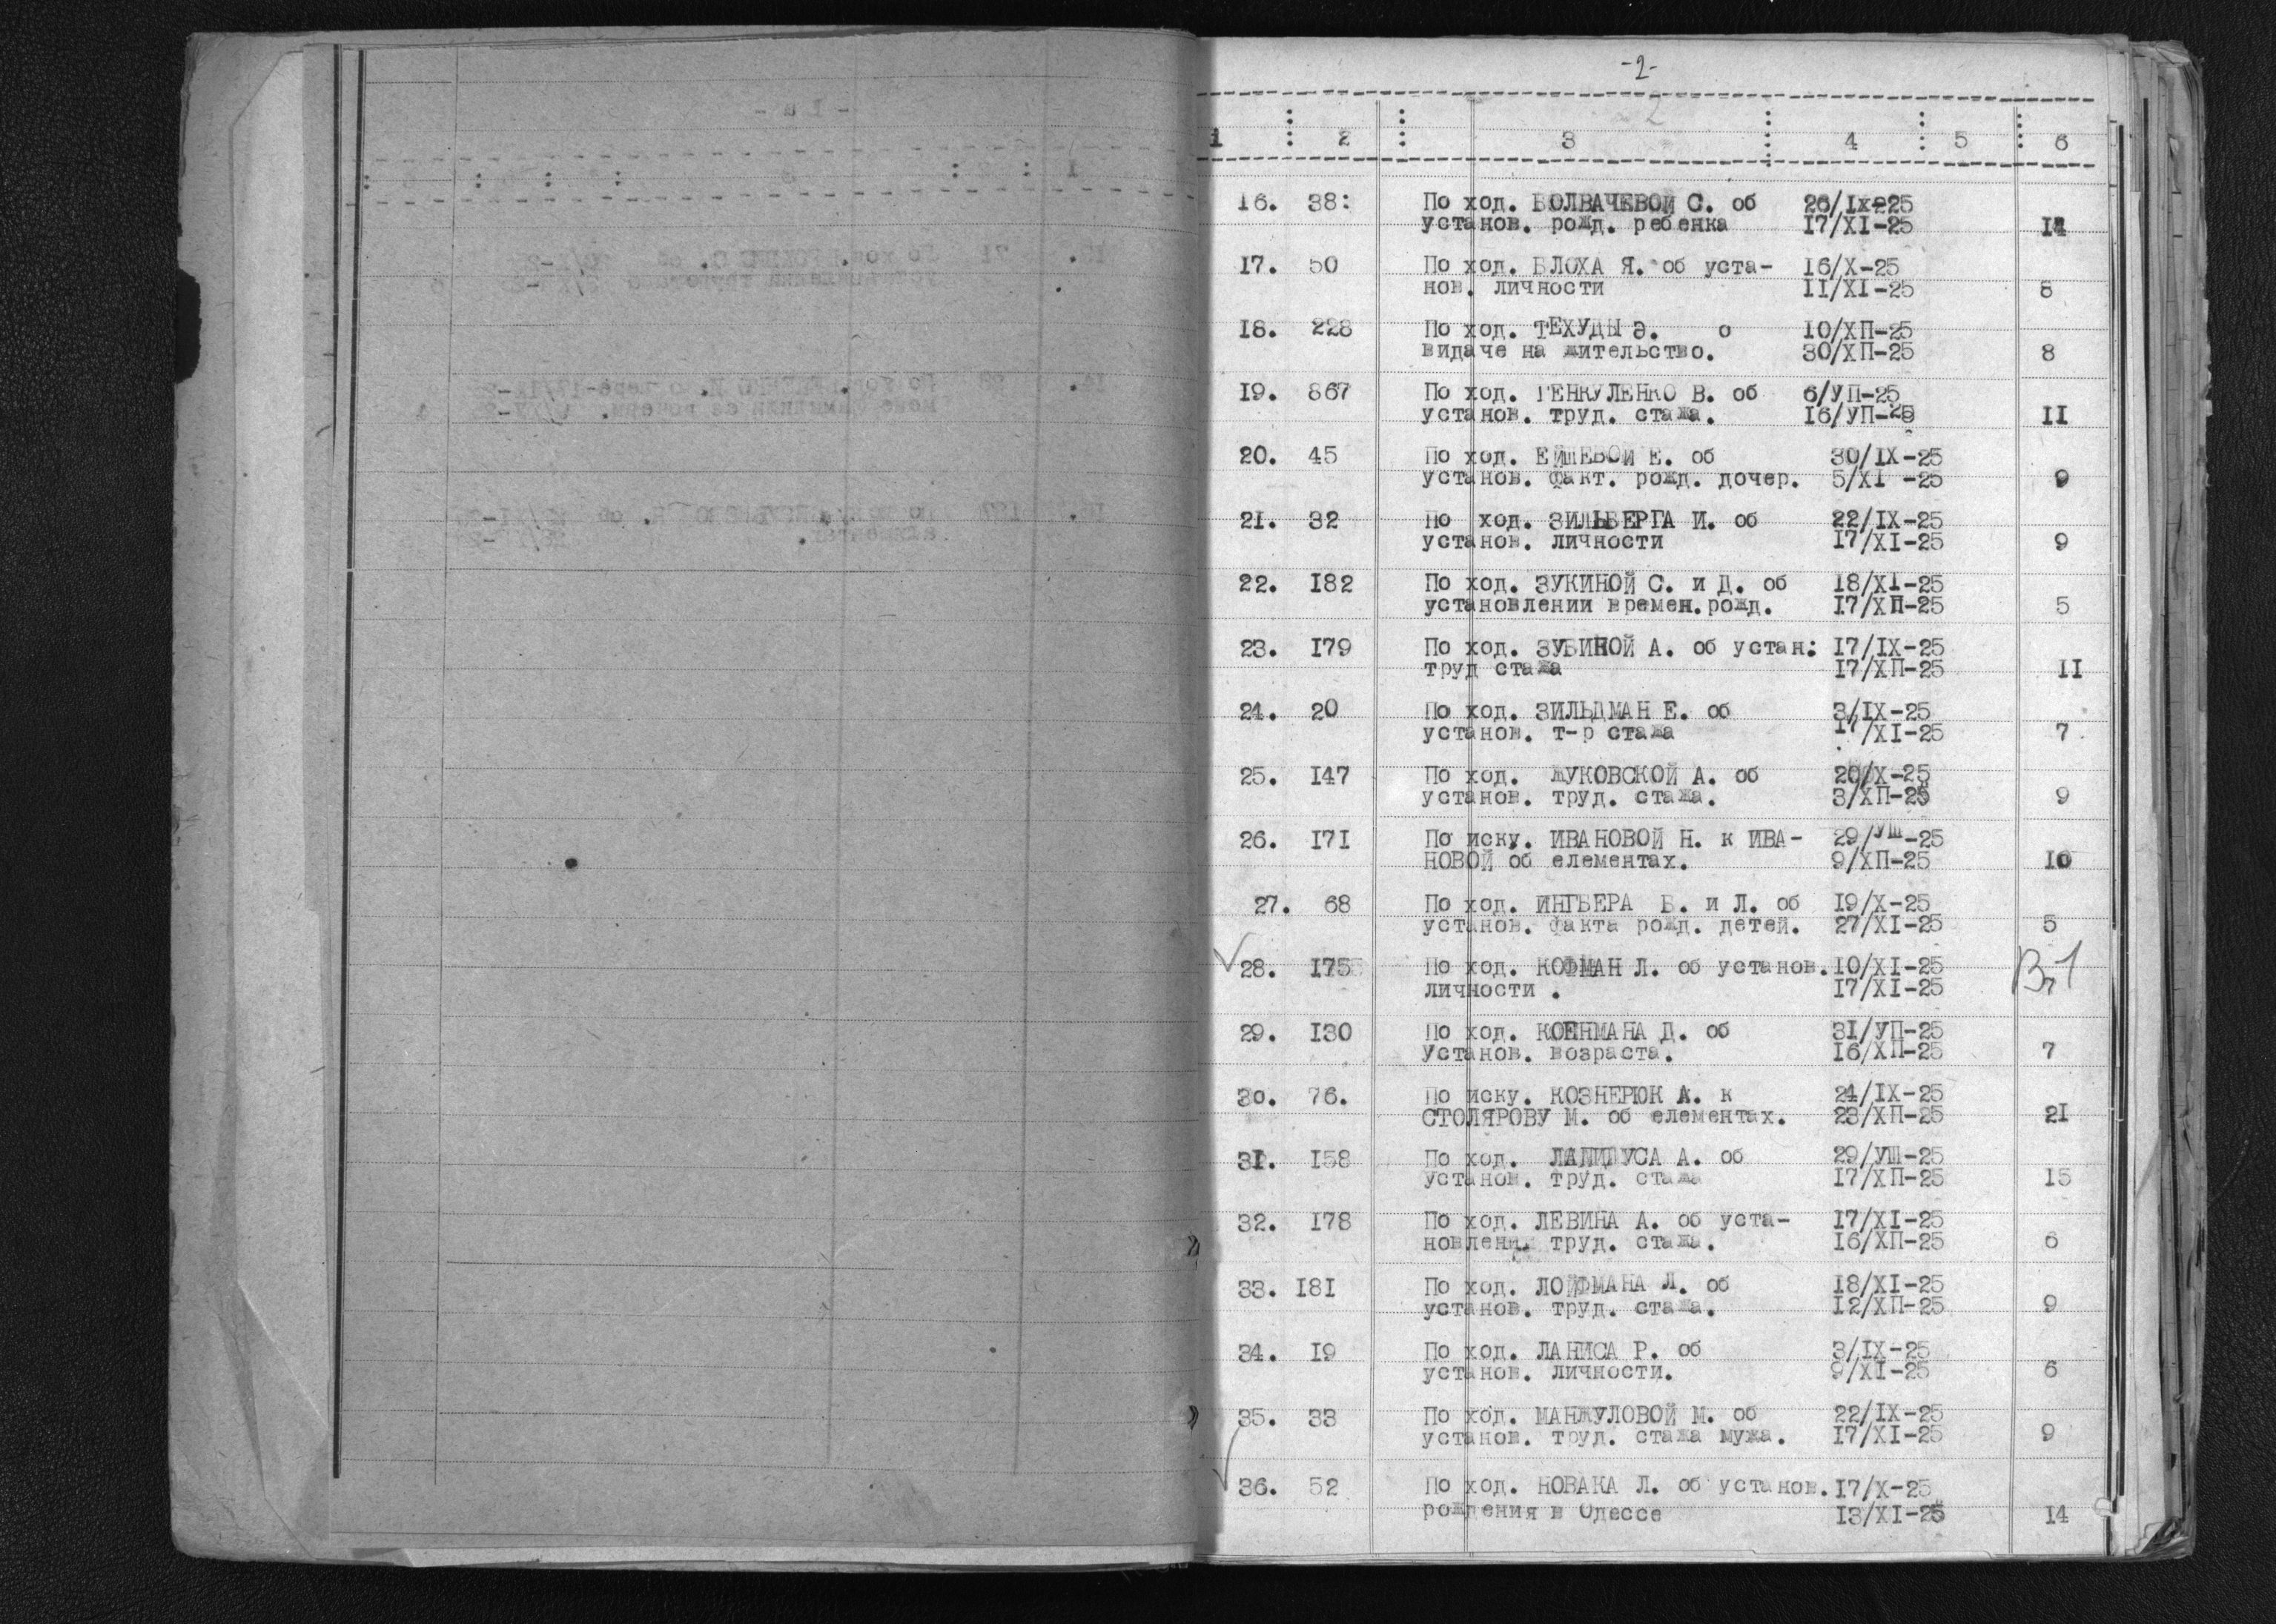 -2-
2
1 2 3 4 5 6
16. 38: По ход. ВОЛВАЧЕВОЙ С. об 26/Iх-225
установ. рожд. ребенка 17/XI-25 14
17. 50 По ход. БЛОХА Я. об уста- 16/X-25
нов. личности 11/XI-25 8
18. 228 По ход. ТЕХУДЫ Э. о 10/ХП-25
видаче на жительство. 30/ХП-25 8
19. 867 По ход. ГЕНКУЛЕНКО В. об 6/УП-25
установ. труд. стажа. 16/УП-25 11
20. 45 По ход. ЕЙШЕВОЙ Е. об 30/IX-25
установ. факт. рожд. дочер. 5/XI -25 9
21. 32 По ход. ЗИЛЬБЕРГА И. об 22/IX-25
установ. личности 17/XI-25 9
22. 182 По ход. ЗУКИНОЙ С. и Д. об 18/XI-25
установлении времен.рожд. 17/ХП-25 5
23. 179 По ход. ЗУБИНОЙ А. об устан: 17/IX-25
труд стажа 17/ХП-25 11
24. 20 По ход. ЗИЛЬДМАН Е. об 3/IX-25
установ. т-р стажа 17/XI-25 7
25. 147 По ход. ЖУКОВСКОЙ А. об 20/X-25
установ. труд. стажа. 3/ХП-25 9
26. 171 По иску. ИВАНОВОЙ Н. к ИВА- 29/УШ-25
НОВОЙ об елементах. 9/ХП-25 10
27. 68 По ход. ИНГБЕРА Б. и Л. об 19/X-25
установ. факта рожд. детей. 27/XI-25 5
28. 175 По ход. КОФМАН Л. об установ. 10/XI-25
личности . 17/XI-25 7
29. 130 По ход. КОЕНМАНА Д. об 31/УП-25
Установ. возраста. 16/ХП-25 7
30. 76. По иску. КОЗНЕРЮК А. к 24/IX-25
СТОЛЯРОВУ М. об елементах. 23/ХП-25 21
31. 158 По ход. ЛАПИДУСА А. об 29/УШ-25
установ. труд. стажа 17/ХП-25 15
32. 178 По ход. ЛЕВИНА А. об уста- 17/XI-25
новлении труд. стажа. 16/ХП-25 6
33. 181 По ход. ЛОЙФМАНА Л. об 18/XI-25
установ. труд. стажа. 12/ХП-25 9
34. 19 По ход. ЛАНИСА Р. об 3/IX-25
установ. личности. 9/XI-25 6
35. 33 По ход. МАНЖУЛОВОЙ М. об 22/IX-25
установ. труд. стажа мужа. 17/XI-25 9
36. 52 По ход. НОВАКА Л. об установ. 17/X-25
рождения в Одессе 13/XI-25 14